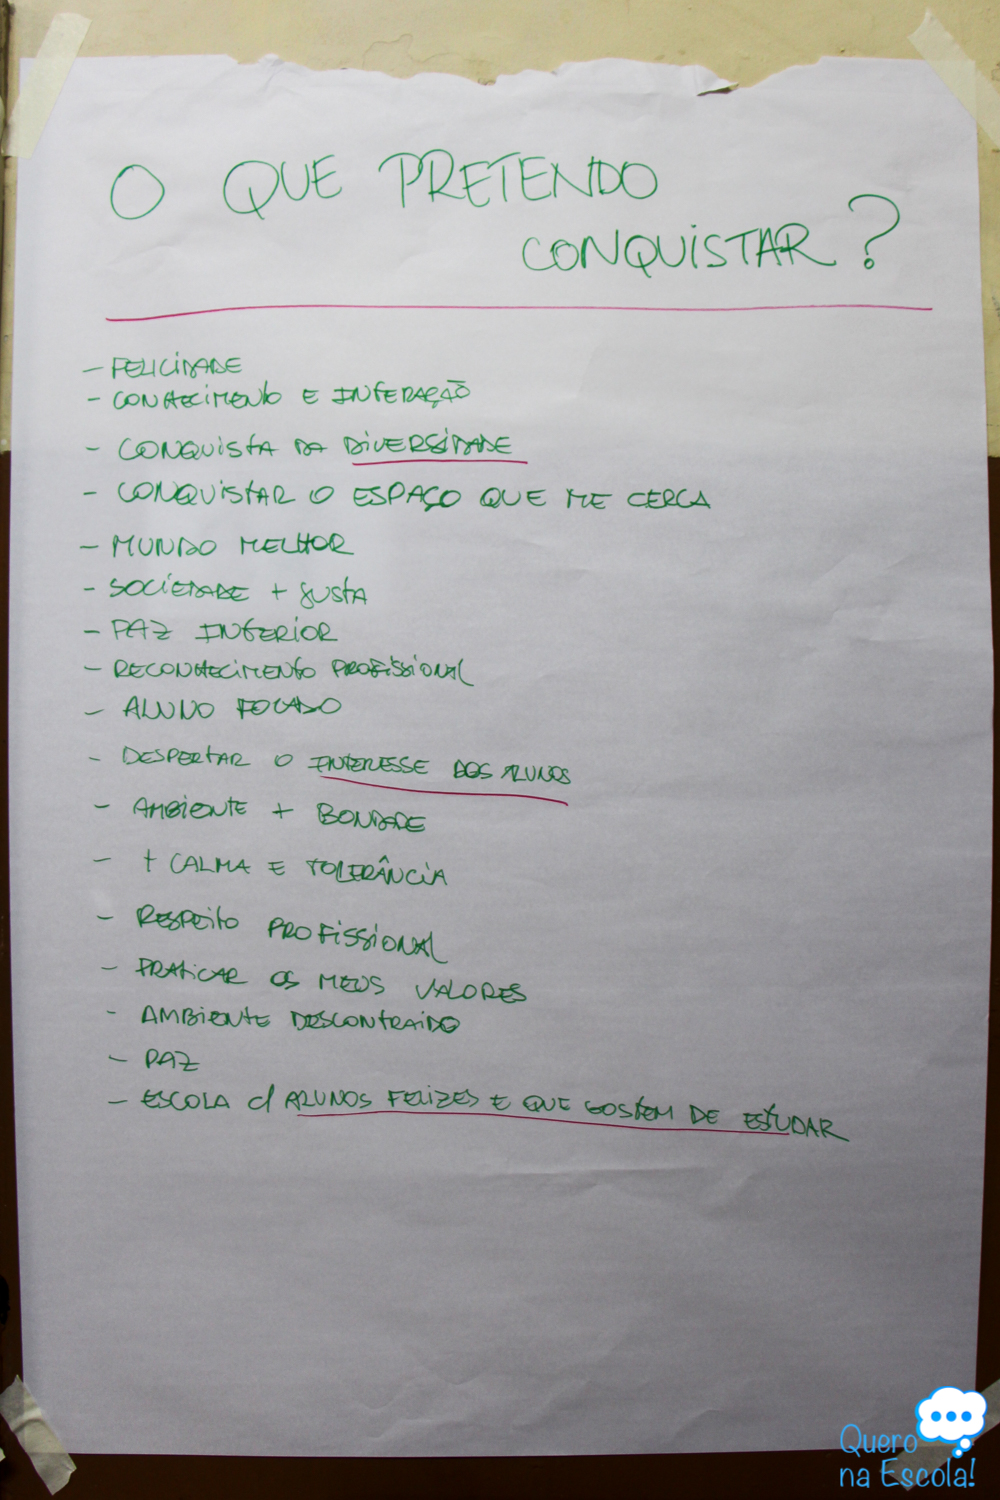 O QUE PRETENDO
CONQUISTAR?
- FELICIDADE
- CONHECIMENTO E INTERAÇÃO
- CONQUISTA DA DIVERSIDADE
- CONQUISTAR O ESPAÇO QUE ME CERCA
- MUNDO MELHOR
- SOCIEDADE + JUSTA
- PAZ INTERIOR
- RECONHECIMENTO PROFISSIONAL
- ALUNO FOCADO
- DESPERTAR O INTERESSE DOS ALUNOS
- AMBIENTE + BONDADE
- + CALMA E TOLERÂNCIA
- RESPEITO PROFISSIONAL
- PRATICAR OS MEUS VALORES
- AMBIENTE DESCONTRAIDO
- PAZ
- ESCOLA c/ ALUNOS FELIZES E QUE GOSTEM DE ESTUDAR
Quero
na Escola!